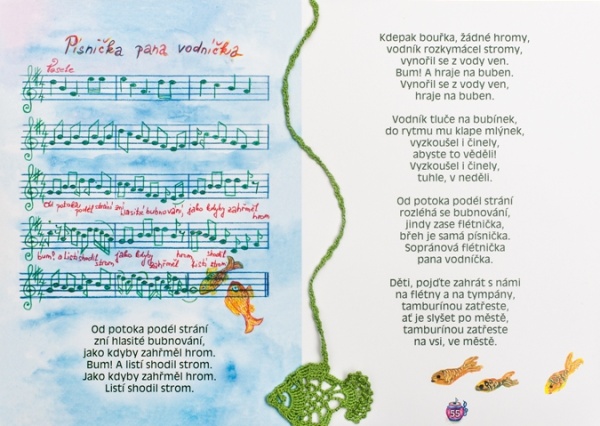 Písnička pana vodníčka
Vesele
Od potoka podél strání zní hlasité bubnování, jako kdyby zahřměl hrom
bum! a listí shodil strom jako kdyby zahřměl hrom shodil listí strom
Od potoka podél strání
zní hlasité bubnování,
jako kdyby zahřměl hrom.
Bum! A listí shodil strom.
Jako kdyby zahřměl hrom.
Listí shodil strom.
Kdepak bouřka, žádné hromy,
vodník rozkymácel stromy,
vynořil se z vody ven.
Bum! A hraje na buben.
Vynořil se z vody ven,
hraje na buben.
Vodník tluče na bubínek,
do rytmu mu klape mlýnek,
vyzkoušel i činely,
abyste to věděli!
Vyzkoušel i činely,
tuhle, v neděli.
Od potoka podél strání
rozléhá se bubnování,
jindy zase flétnička,
břeh je samá písnička.
Sopránová flétnička
pana vodníčka.
Děti, pojďte zahrát s námi
na flétny a na tympány,
tamburínou zatřeste,
ať je slyšet po městě,
tamburínou zatřeste
na vsi, ve městě.
55